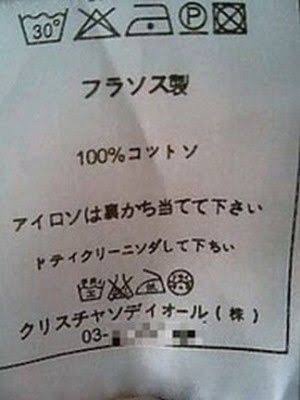 30°
フラソス製
100%コットソ
アイロソは裏かち当てて下さい
ドティクリーニソダして下ちぃ
クリスチャソディオール(株)
03-